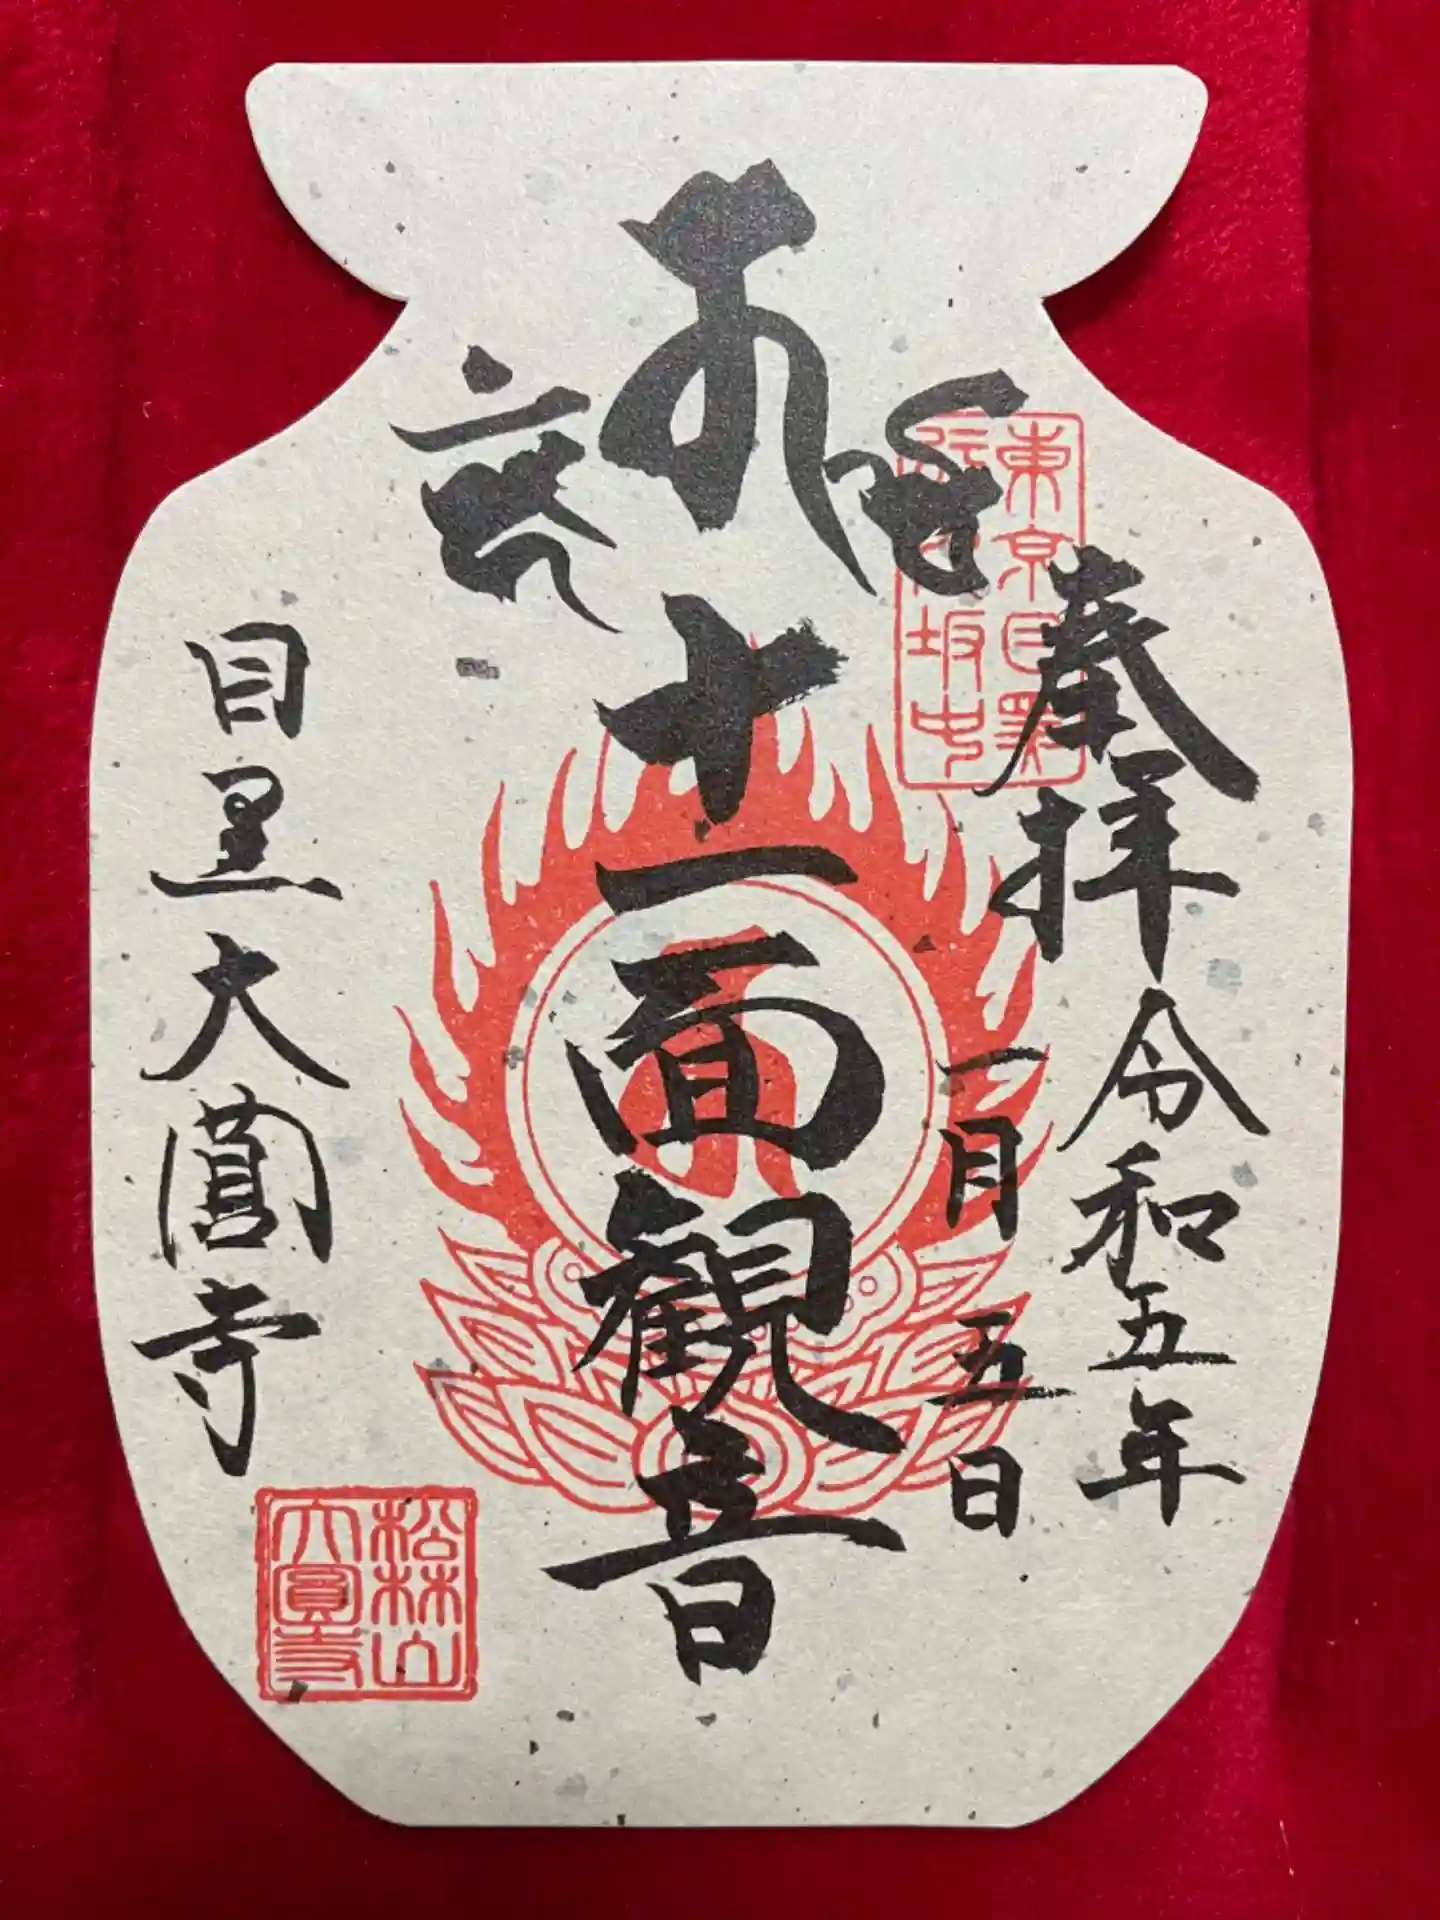 奉拝
令和五年
一月五日
十一面観音
目黒大圓寺
東京目黒
松林山
大圓寺